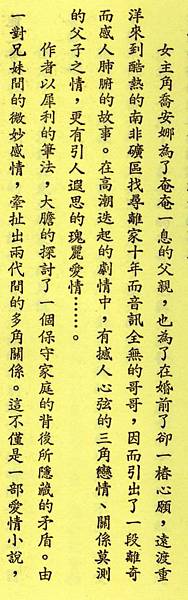 女主角喬安娜為了奄奄一息的父親，也為了在婚前了卻一樁心願，遠渡重
洋來到酷熱的南非礦區找尋離家十年而音訊全無的哥哥，因而引出了一段離奇
而感人肺腑的故事。在高潮迭起的劇情中，有撼人心弦的三角戀情、關係莫測
的父子之情，更有引人遐思的瑰麗愛情……。
作者以犀利的筆法，大膽的探討了一個保守家庭的背後所隱藏的矛盾。由
一對兄妹間的微妙感情，牽扯出兩代間的多角關係。這不僅是一部愛情小說，